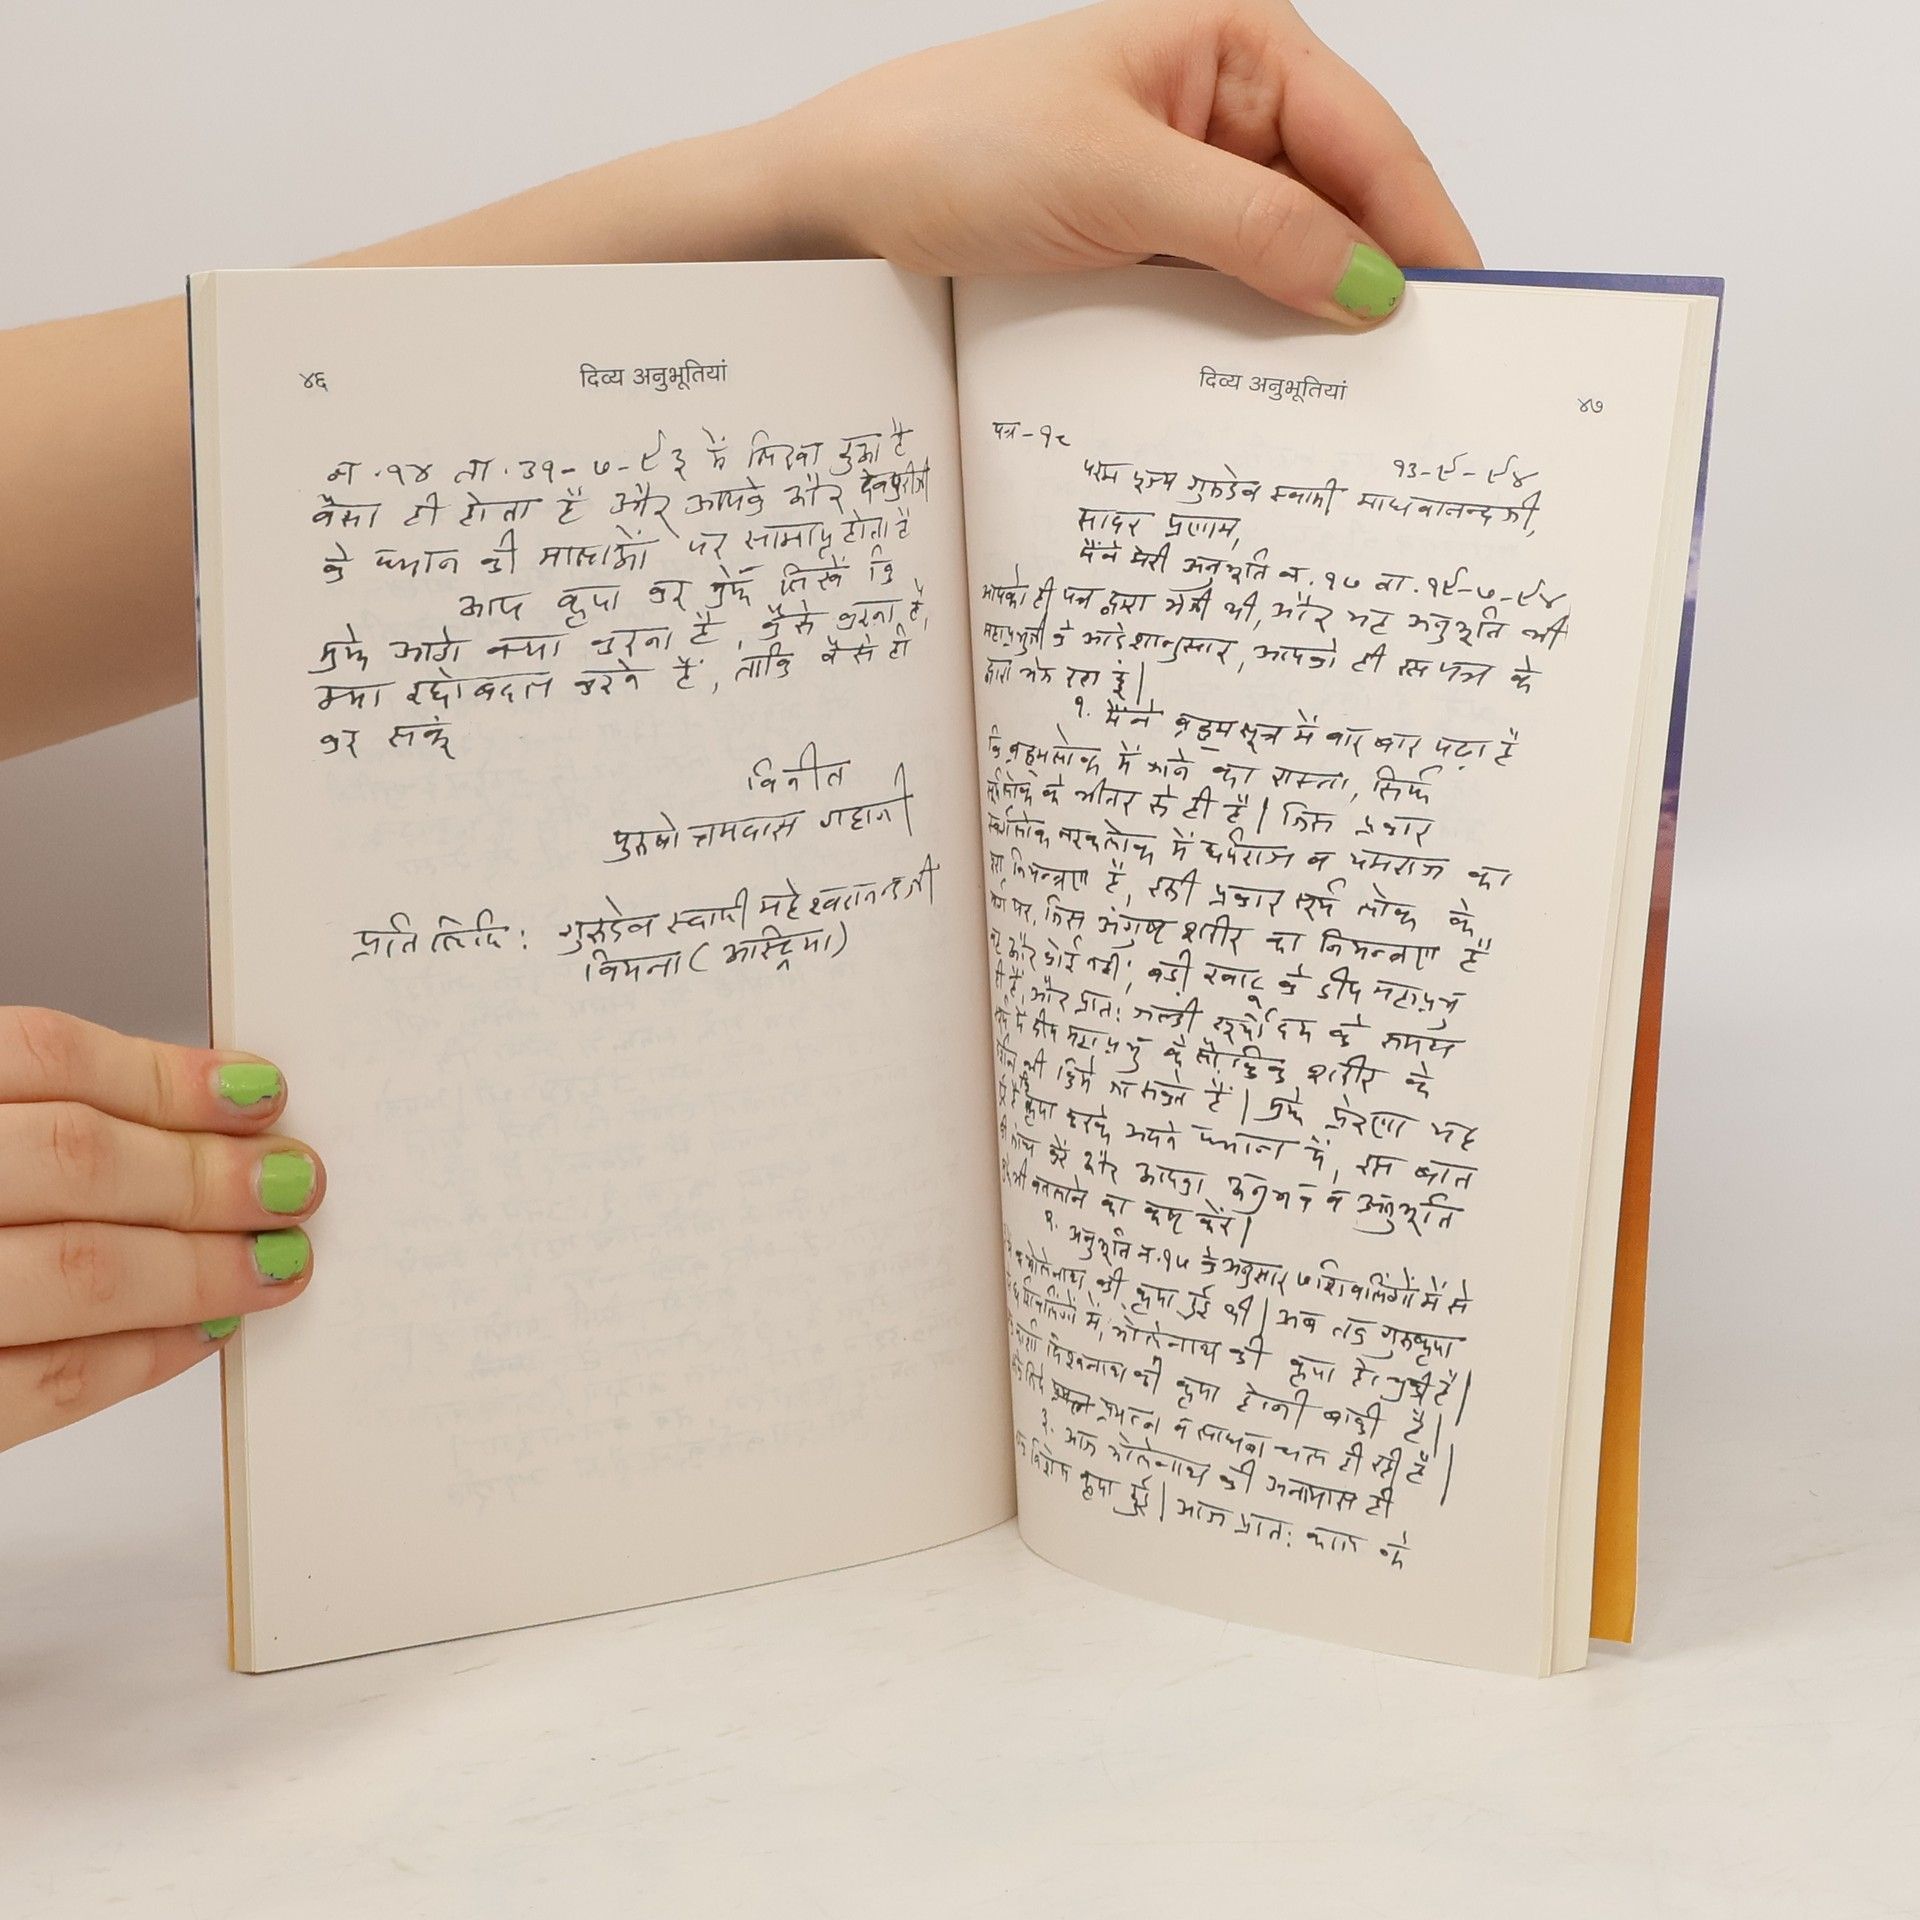 ४६
दिव्य अनुभूतियां
न. १४ ता. ३१-७-९३ में लिखा हुआ है
वैसा ही होता है और आपके और देवपुरीजी
के ध्यान की मालाओं पर सामाप्त होता है
आप कृपा कर मुझे लिखें कि
मुझे आगे क्या करना है, कैसे करना है,
क्या रद्दोबदल करने हैं, ताकि वैसे ही
कर सकूं
विनीत
पुरुषोत्तमदास
प्रतिलिपि: गुरुदेव स्वामी महेश्वरानन्दजी
वियना (आस्ट्रिया)
दिव्य अनुभूतियां
४७
पत्र-१८
१३-९-९४
परम पूज्य गुरुदेव स्वामी माधवानन्दजी,
सादर प्रणाम,
मैंने मेरी अनुभूति न. १७ ता. १९-७-९४
आपको ही पत्र द्वारा भेजी थी, और यह अनुभूति भी
महाप्रभुजी के आदेशानुसार, आपको ही इस पत्र के
द्वारा भेज रहा हूं|
१. मैंने ब्रह्मसूत्र में बार बार पढ़ा है
कि ब्रह्मलोक में जाने का रास्ता, सिर्फ
सूर्यलोक के भीतर से ही है| जिस प्रकार
स्वर्गलोक नरकलोक में धर्मराज व यमराज का
नियन्त्रण है, इसी प्रकार सूर्य लोक के
पर, जिस अंगुष्ठ शरीर का नियन्त्रण है
और कोई नहीं, बड़ी खाटू के दीप महाप्रभु
ही हैं, और प्रात: जल्दी सूर्योदय के समय
दीप महाप्रभु के लौकिक शरीर के
भी किये जा सकते हैं| मुझे प्रेरणा यह
कृपा करके अपने ध्यान में, इस बात
की जांच करें और आपका अनुभव व अनुभूति
भी बतलाने का कष्ट करें|
२. अनुभूति न. १७ के अनुसार ७ शिवलिंगों में से
भोलेनाथ की कृपा हुई थी| अब तक गुरुकृपा
शिवलिंगों में, भोलेनाथ की कृपा हो चुकी है|
विश्वनाथ की कृपा होनी बाकी है|
लिये प्रयत्न व साधना चल ही रही है|
३. आज भोलेनाथ की अनायास ही
विशेष कृपा हुई| आज प्रात: काल के